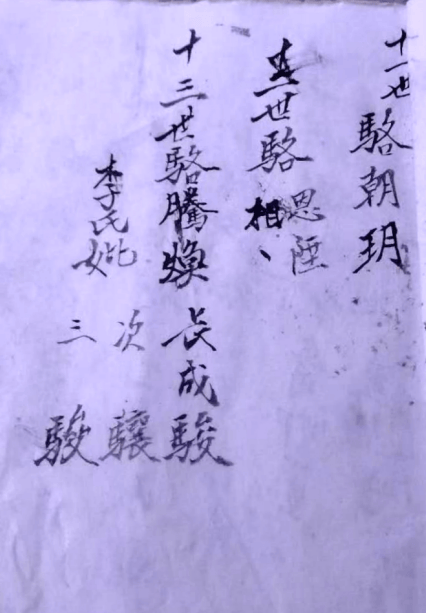 十一世駱朝玥
十二世駱
恩陞
相、
十三世駱騰煥 長成駿
李氏妣
次 驤
三